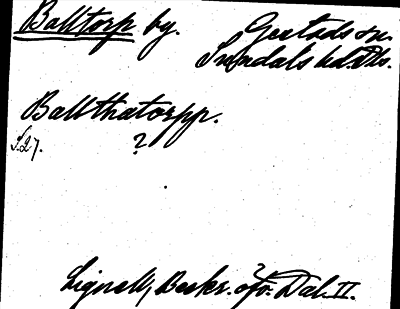 Balltorp by. Gestads sn.
Sundals hd. Ds.
Ballthatorpp.
S.27. ?
Lignell, Beskr. öfv. Dal. II.